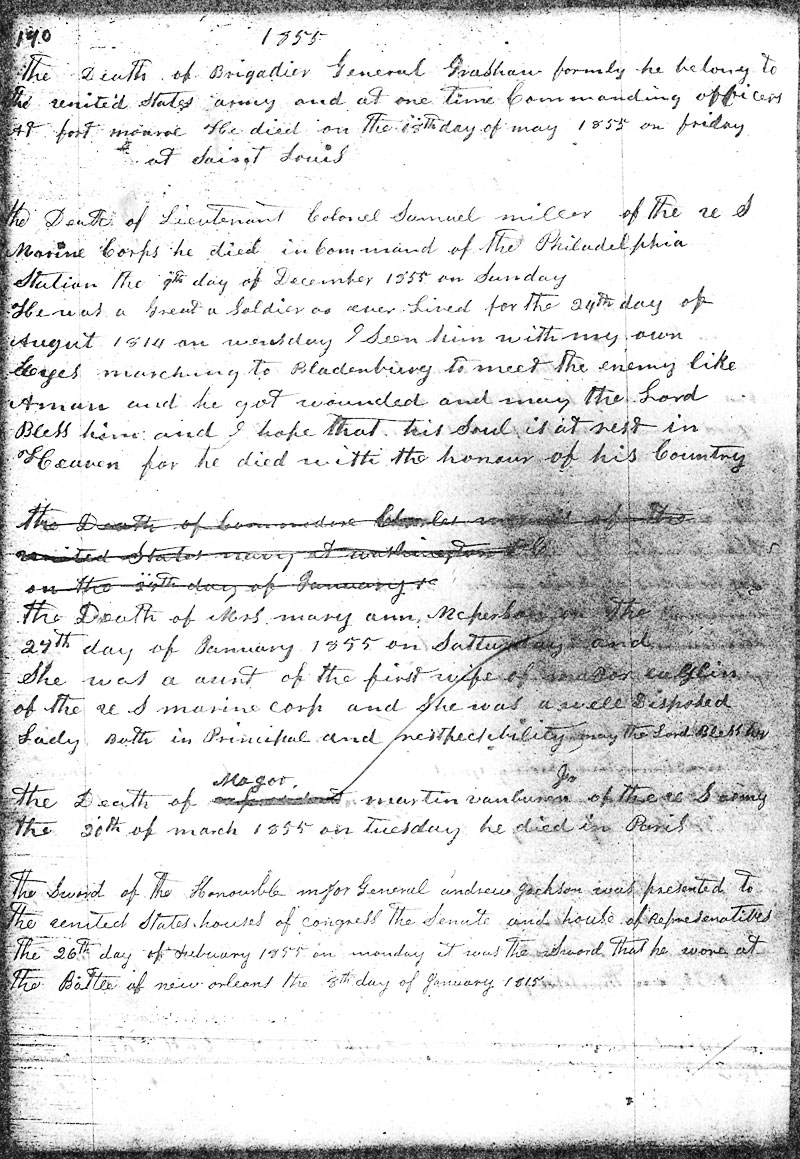 190 1855
The Death of Brigadier General Grashaw formly he belong to
the united States army and at one time Commanding officers
At fort monroe He died on the 18th day of may 1855 on friday
at Saint Louis
the Death of Lieutenant Colonel Samuel miller of the u S
Marine Corps he died in Command of the Philadelphia
Station the 9th day of December 1855 on Sunday
He was a Great a Soldier as ever Lived for the 24th day of
August 1814 on wensday I Seen him with my own
Eyes marching to Bladenburg to meet the enemy like
Aman and he got wounded and may the Lord
Bless him and I hope that his Soul is at rest in
Heaven for he died with the honour of his Country
the Death of Commodore Charles of the
united States navy at washington D C
on the 24th day of January
the Death of Mrs mary ann Mcperson on the
27th day of January 1855 on Satturday and
She was a aunt of the first wife of major
of the u S marine corp and She was a well Disposed
Lady Both in Principal and respectibility may the Lord Bless her
the Death of Magor martin vanburen Jr of the u S army
the 20th of march 1855 on Tuesday he died in Paris
The Sword of the Honourble major General andrew Jackson was presented to
the united States houses of congress the Senate and house of Represenatives
The 26th day of February 1855 on monday it was the Sword that he wore at
The Battle of new orleans the 8th day of January 1815